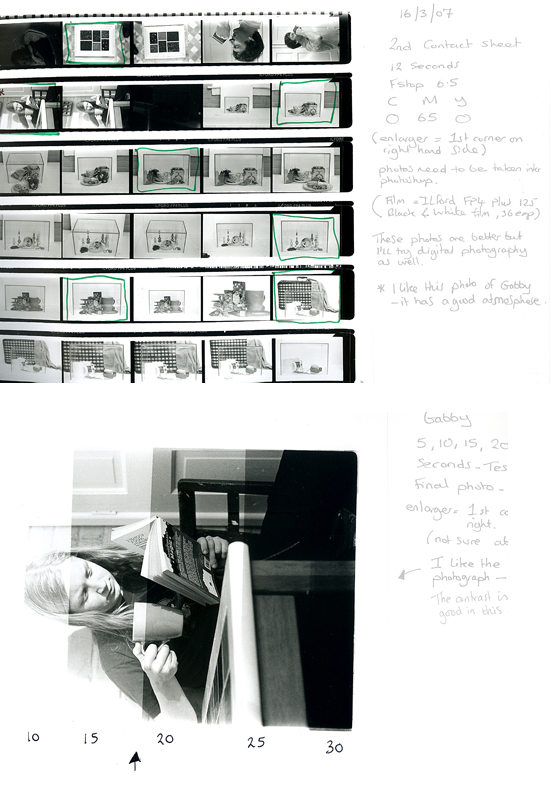 16/3/07
2nd Contact sheet
12 seconds
F stop 6.5
C M Y
0 65 0
(enlarger = 1st corner on
right hand side)
photos need to be taken into
photoshop.
(Film = ILford FP4 plus 125
Black & White film, 36 exp)
These photos are better but
I'll try digital photography
as well.
* I like this photo of Gabby
- it has a good atmosphere.
Gabby
5, 10, 15, 20
Seconds - Tes
Final photo -
enlarger = 1st c
right.
(not sure at
I like the
photograph -
The contrast is
good in this
10 15 20 25 30